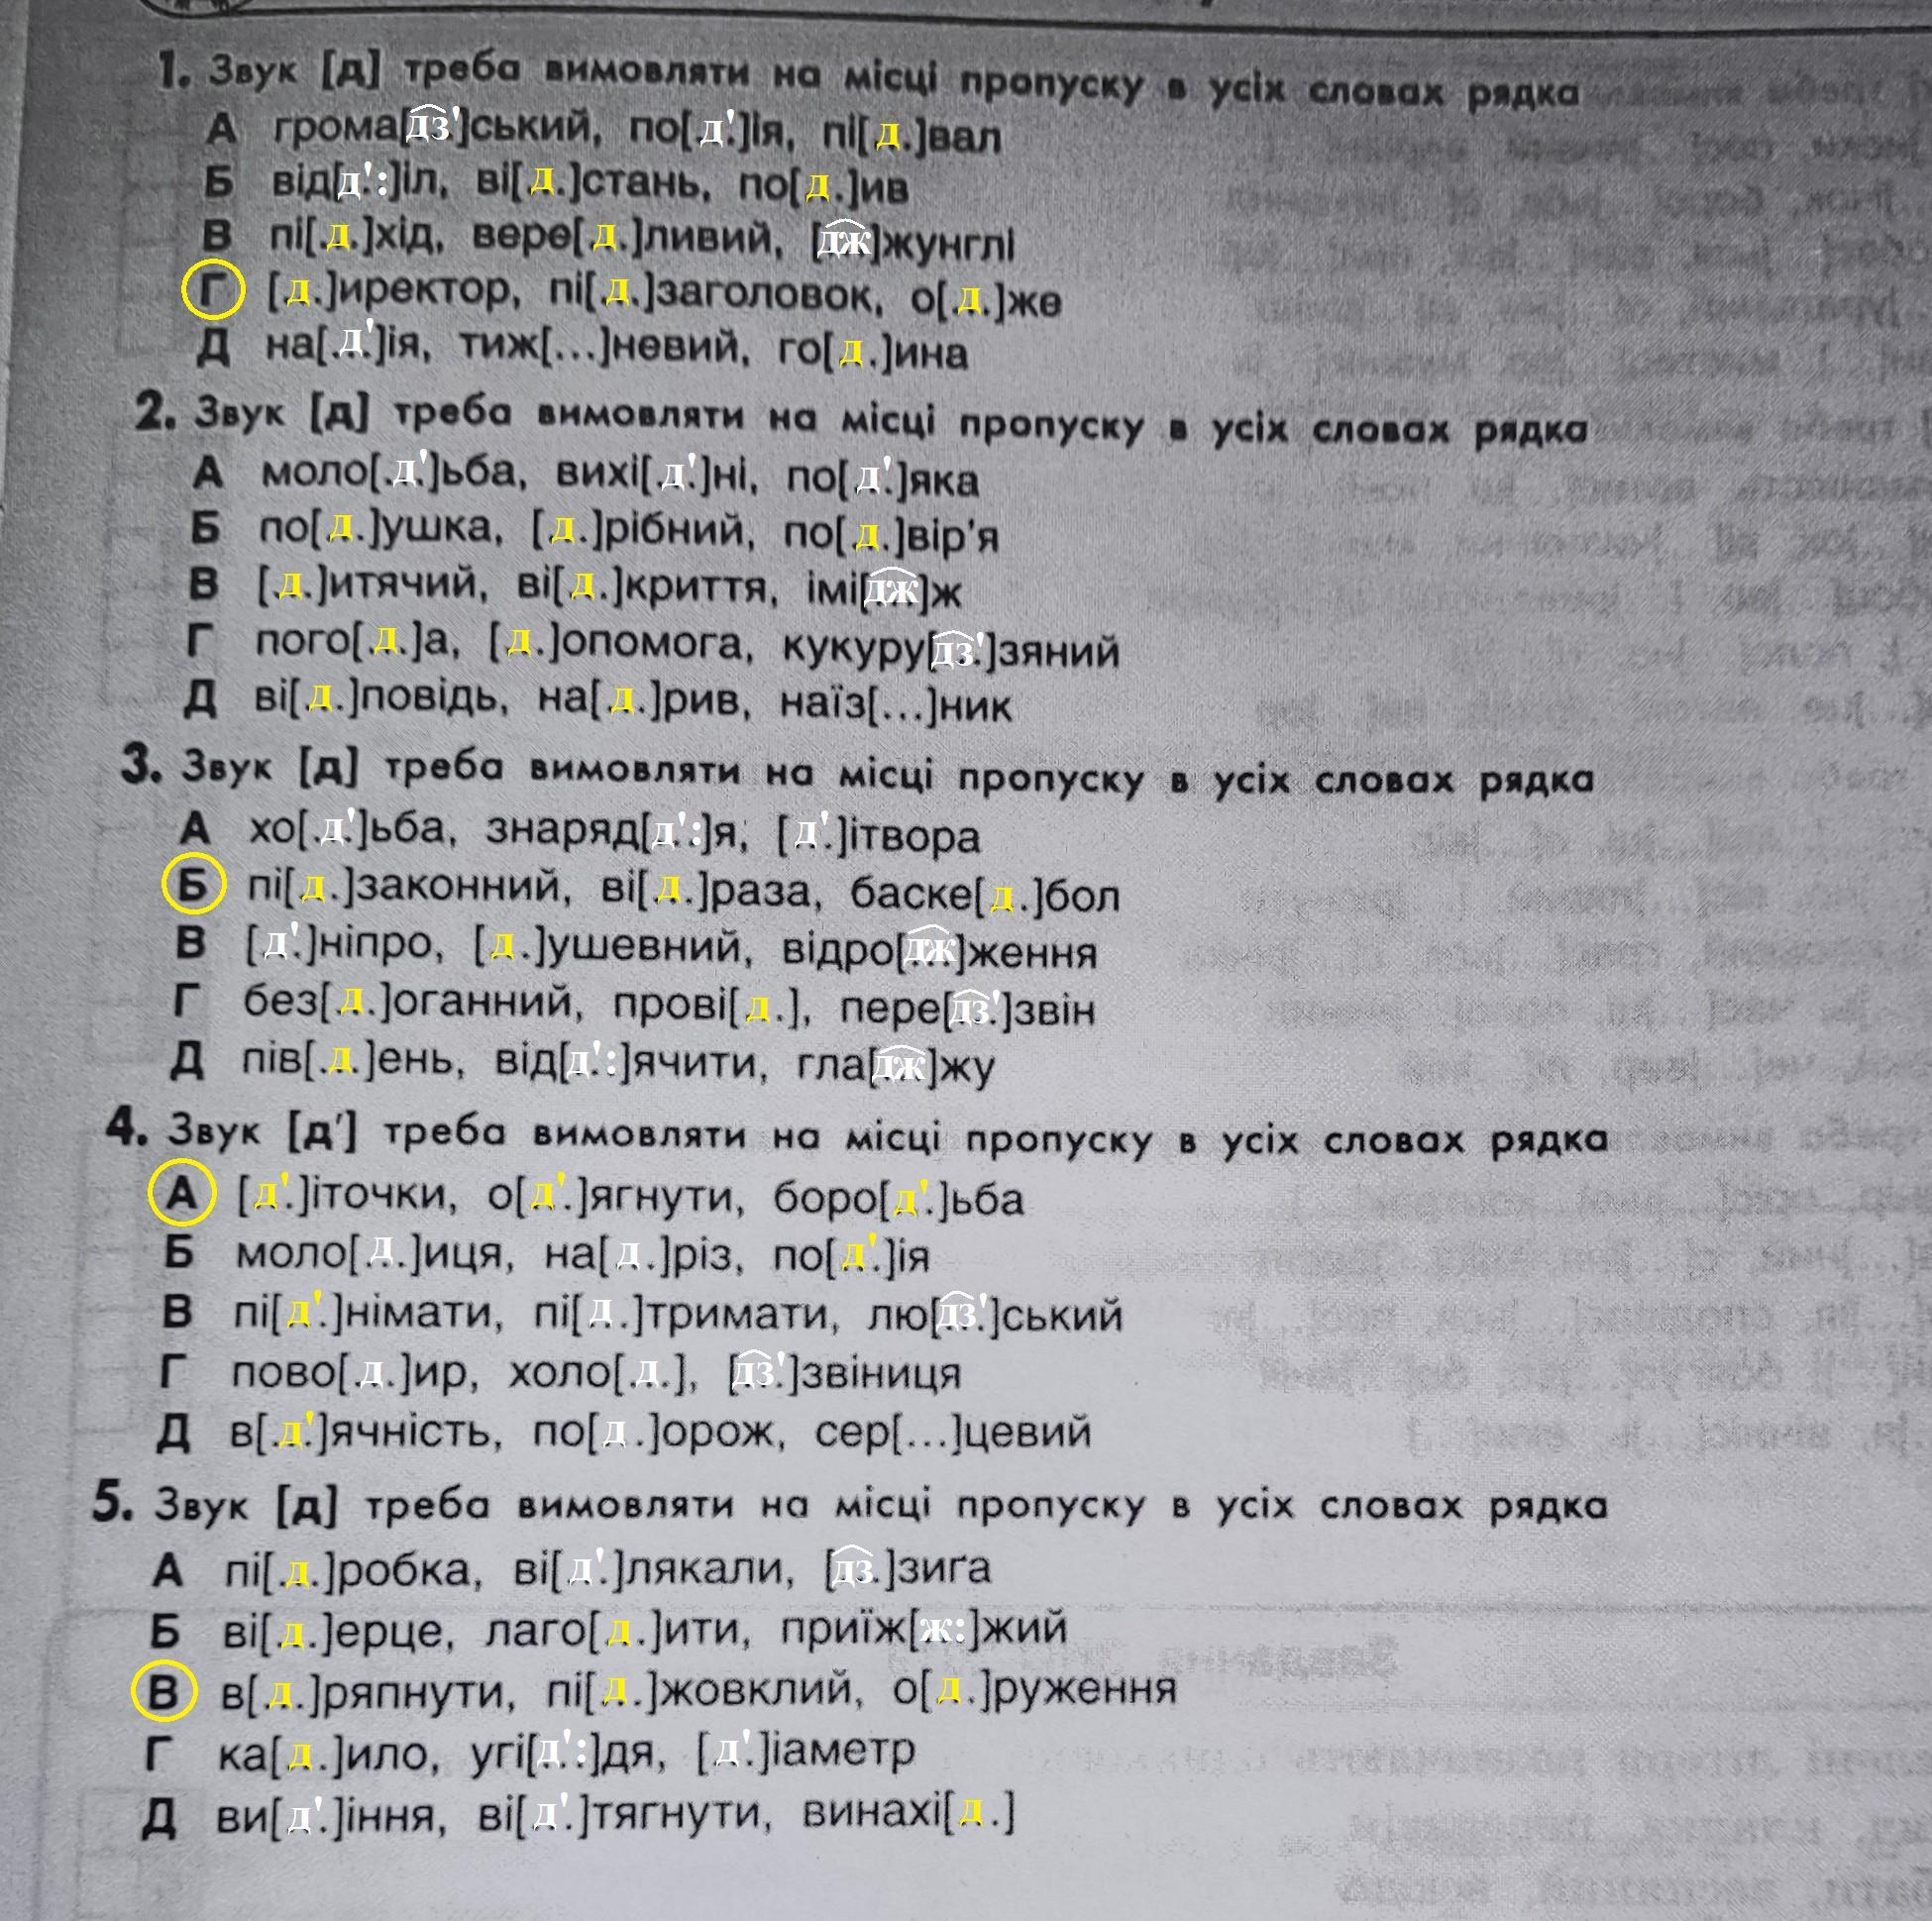 1. Звук [д] треба вимовляти на місці пропуску в усіх словах рядка
А грома[д͡з']ський, по[.д'.]ія, пі[д.]вал
Б від[д':]іл, ві[.д.]стань, по[д.]ив
В пі[.д.]хід, вере[.д.]ливий, [д͡ж]жунглі
Г [д.]иректор, пі[.д.]заголовок, о[.д.]же
Д на[.д'.]ія, тиж[...]невий, го[д.]ина
2. Звук [д] треба вимовляти на місці пропуску в усіх словах рядка
А моло[.д'.]ьба, вихі[.д'.]ні, по[.д'.]яка
Б по[д.]ушка, [д.]рібний, по[.д.]вір'я
В [.д.]итячий, ві[.д.]криття, імі[д͡ж]ж
Г пого[.д.]а, [д.]опомога, кукуру[д͡з']зяний
Д ві[.д.]повідь, на[.д.]рив, наїз[...]ник
3. Звук [д] треба вимовляти на місці пропуску в усіх словах рядка
А хо[.д'.]ьба, знаряд[д':]я, [д'.]ітвора
Б пі[.д.]законний, ві[.д.]раза, баске[д.]бол
В [д'.]ніпро, [д.]ушевний, відро[д͡ж]ження
Г без[.д.]оганний, прові[д.], пере[д͡з']звін
Д пів[.д.]ень, від[д':]ячити, гла[д͡ж]жу
4. Звук [д'] треба вимовляти на місці пропуску в усіх словах рядка
А [д'.]іточки, о[д'.]ягнути, боро[д'.]ьба
Б моло[.д.]иця, на[.д.]різ, по[д'.]ія
В пі[д'.]німати, пі[д.]тримати, лю[д͡з']ський
Г пово[.д.]ир, холо[.д.], [д͡з']звіниця
Д в[.д'.]ячність, по[д.]орож, сер[...]цевий
5. Звук [д] треба вимовляти на місці пропуску в усіх словах рядка
А пі[.д.]робка, ві[д'.]лякали, [д͡з.]зиґа
Б ві[.д.]ерце, лаго[.д.]ити, приїж[ж:]жий
В в[.д.]ряпнути, пі[.д.]жовклий, о[д.]руження
Г ка[д.]ило, угі[д':]дя, [д'.]іаметр
Д ви[д'.]іння, ві[д'.]тягнути, винахі[д.]